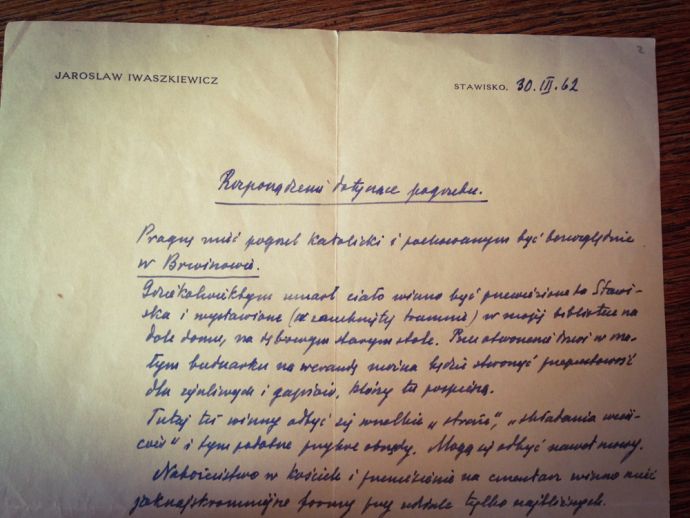 JAROSŁAW IWASZKIEWICZ
STAWISKO, 30.III.62
2
Rozporządzenia dotyczące pogrzebu.
Pragnę mieć pogrzeb katolicki i pochowanym być bezwzględnie
w Brwinowie.
Gdziekolwiekbym umarł ciało winno być przewiezione do Stawi-
ska i wystawione (w zamkniętej trumnie) w mojej bibliotece na
dole domu, na dębowym starym stole. Przez otworzone drzwi w ma-
łym buduarku na werandę można będzie stworzyć przepustowość
dla życzliwych i gapiów, którzy tu pospieszą.
Tutaj też winny odbyć się wszelkie „straże", „składania wień-
ców" i tym podobne przykre obrzędy. Mogą się odbyć nawet mowy.
Nabożeństwo w kościele i przeniesienie na cmentarz winno mieć
jaknajskromniejsze formy przy udziale tylko najbliższych.